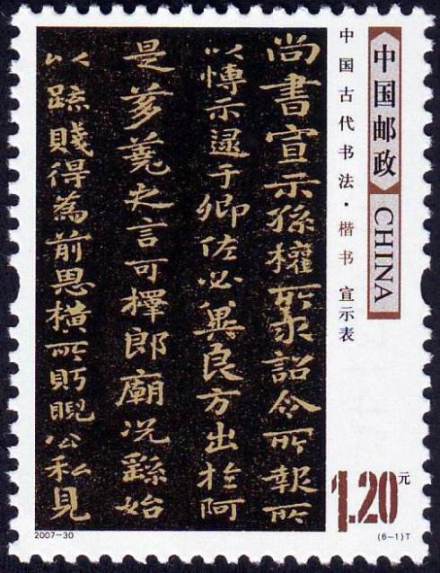 尚書宣示孫權所求詔令所報所
以博示逮于卿佐必冀良方出於阿
是芻蕘之言可擇郎廟況繇始
以疏賤得為前恩橫所眄睨公私見
中国古代书法·楷书 宣示表
中国邮政 CHINA
1.20元
2007-30
(6-1)T